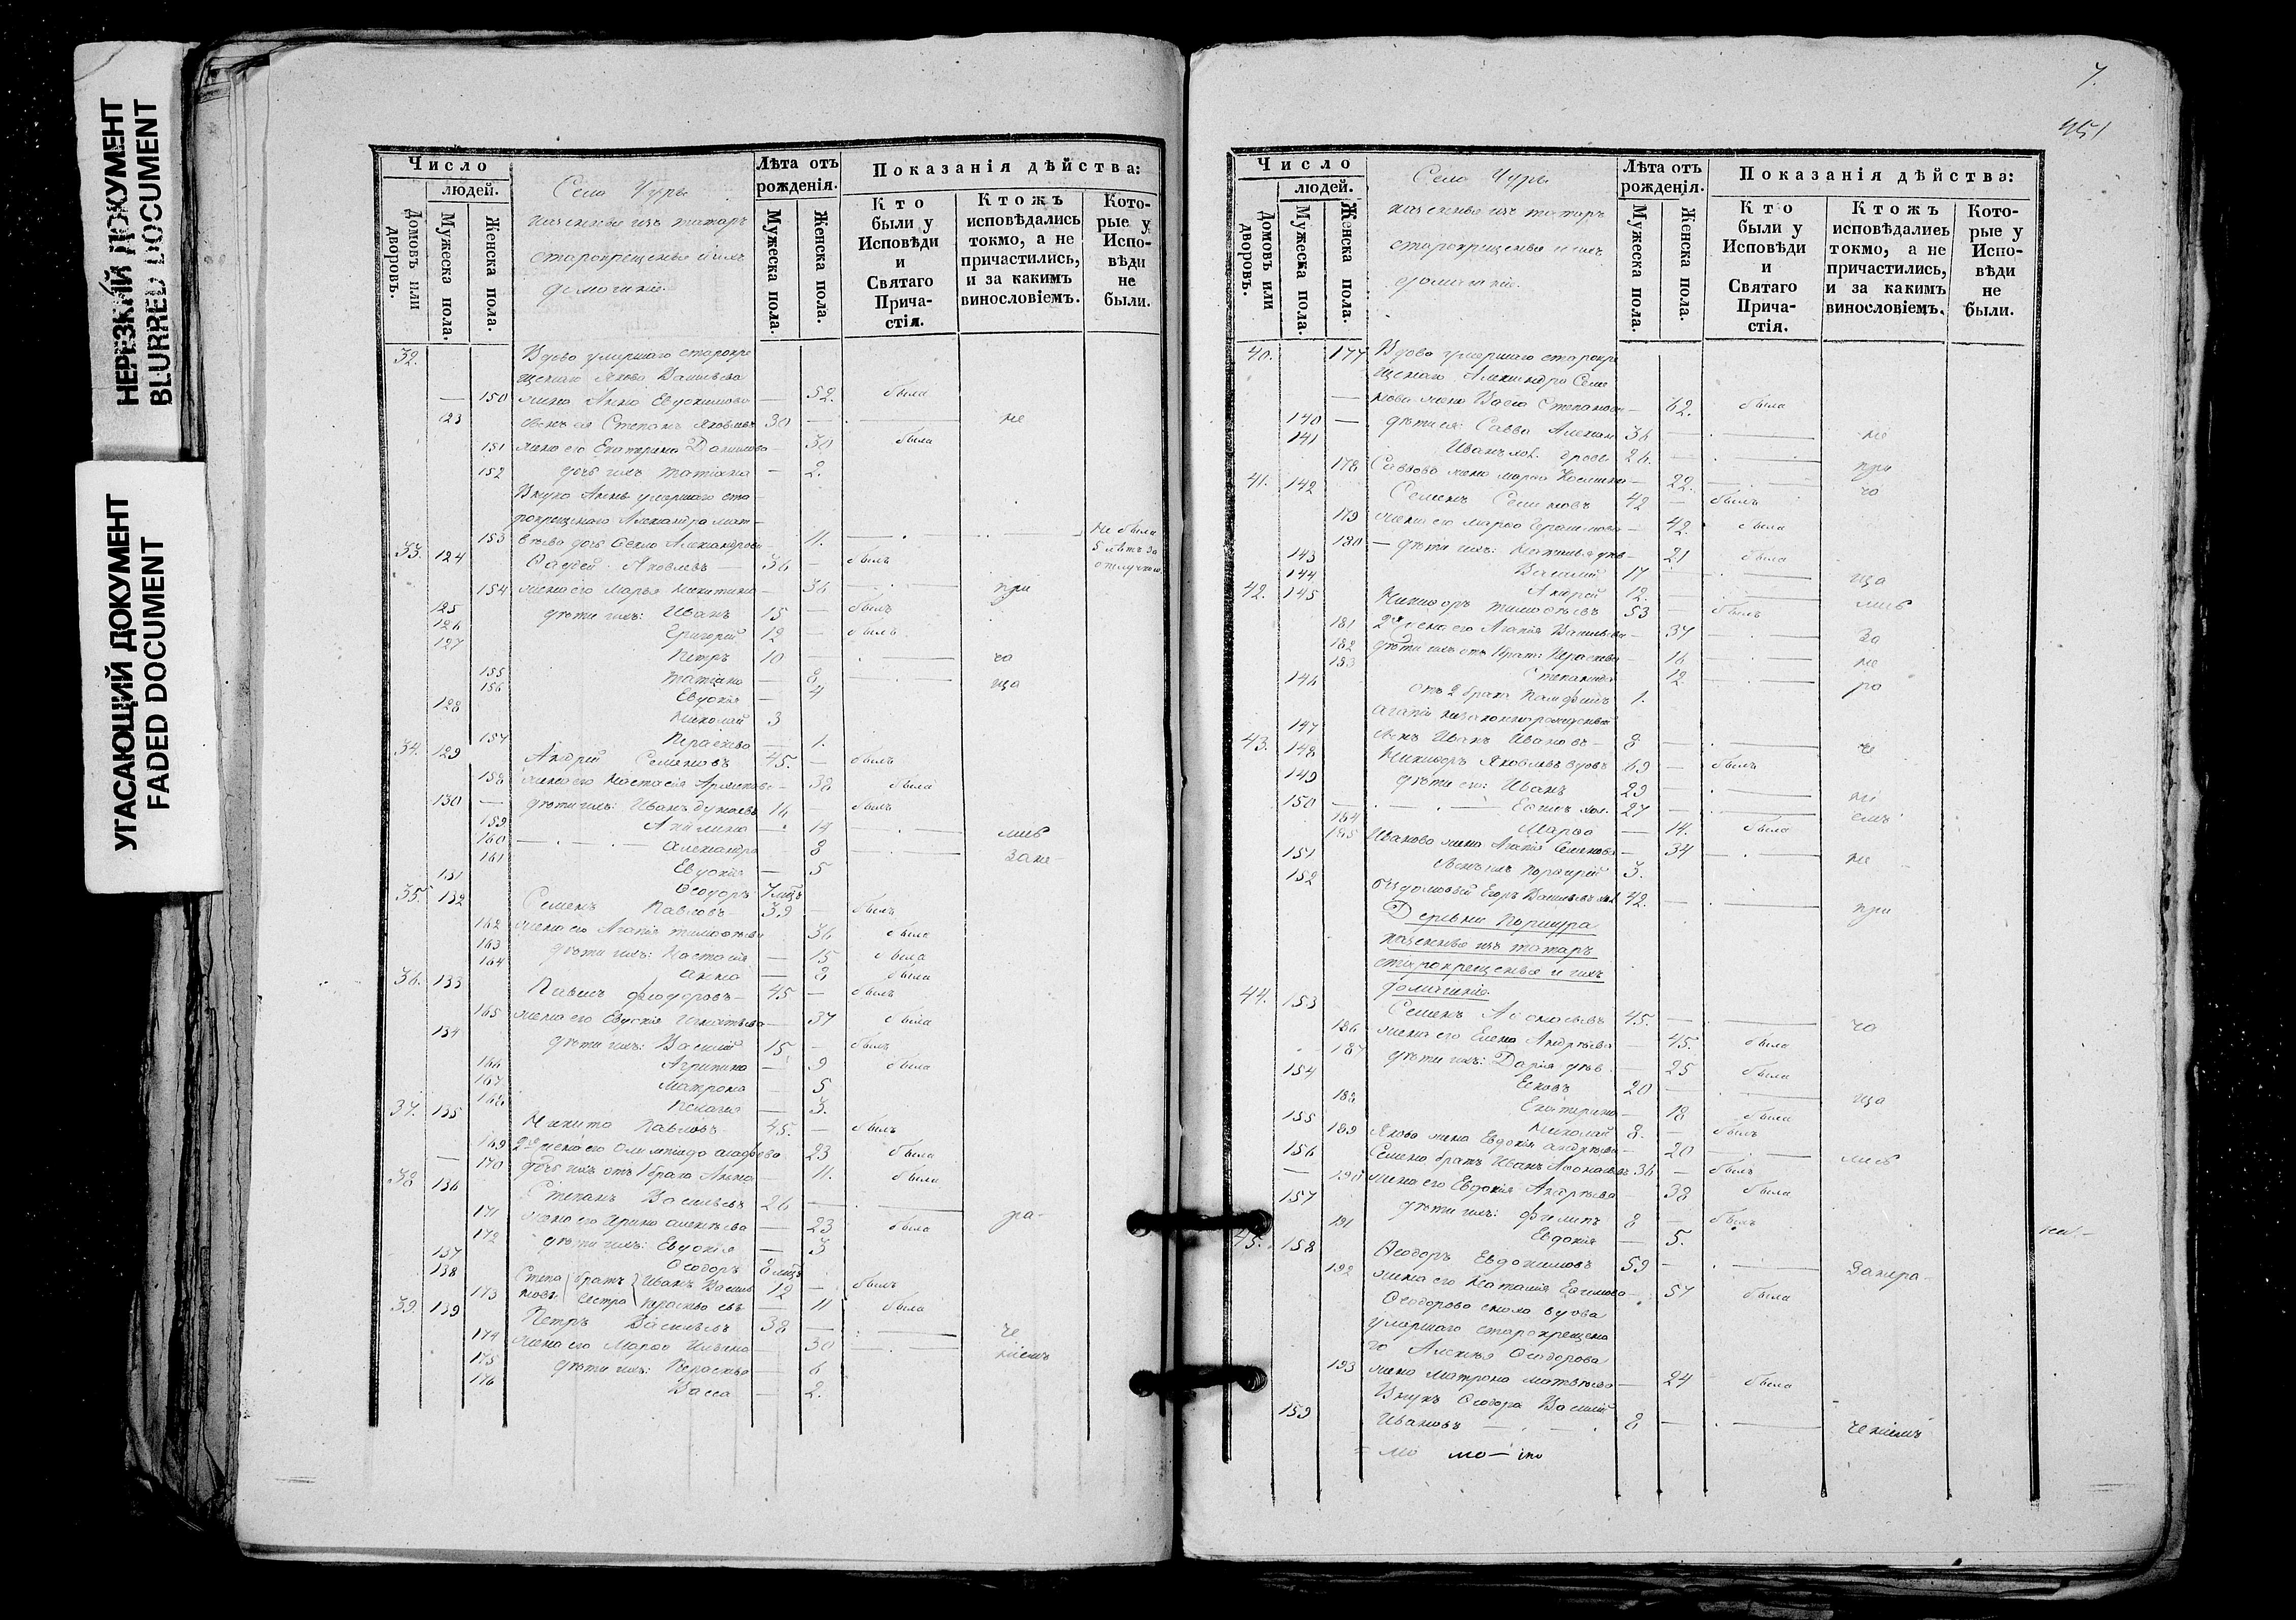 НЕРЕЗКИЙ ДОКУМЕНТ
BLURRED DOCUMENT
УГАСАЮЩИЙ ДОКУМЕНТ
FADED DOCUMENT
Число
людей.
Домовъ или дворовъ.
Мужеска пола.
Женска пола.
Село Чуры
казенные изъ татаръ
старокрещеные и ихъ
домашніе.
Лѣта отъ рожденія.
Мужеска пола.
Женска пола.
Показанія дѣйства:
Кто были у Исповѣди и Святаго Причастія.
Ктожъ исповѣдались токмо, а не причастились, и за какимъ винословіемъ.
Которые у Исповѣди не были.
32. Вдова умершаго старокре
щенаго Якова Васильева
— 150 жена Анна Евдокимова — 52. была
123 сынъ ея Степанъ Яковлевъ 30 — не
151 жена его Екатерина Данилова — 30 была
152 дочь ихъ Татіана — 2.
Внука Анны умершаго ста
рокрещенаго Александра Мат
153 вѣева дочь Ѳекла Александрова 11. Не была
5 лѣтъ за
отлучкою
33. 124 Фадей Яковлевъ 36 — былъ
154 жена его Марья Никитина — 36 при
125 дѣти ихъ: Иванъ 15 — былъ
126 Григорій 12 — былъ
127 Петръ 10 — ча
155 Татіана — 8 ща
156 Евдокія — 4
128 Николай 3
157 Параскева — 1.
34. 129 Андрей Семеновъ 45. — былъ
158 жена его Настасія — 38 была
130 — дѣти ихъ: Иванъ 16 былъ
159 Акилина — 14 лись
160 Александра 8 зане
161 Евдокія — 5
131 Ѳеодоръ 7 мѣц
35. 132 Семенъ Павловъ 39 — былъ
162 жена его Агапія Тимоѳеева 36 была
163 дѣти ихъ: Настасія — 15 была
164 Анна — 8 была
36. 133 Павелъ Феодоровъ 45 — былъ
165 жена его Евдокія Игнатьева 37 была
134 дѣти ихъ: Василій 15 — былъ
166 Агрипина — 9 была
167 Матрона — 5
168 Пелагія — 3.
37. 135 Никита Павловъ 45. — былъ
169 2я жена его Олимпіада 23 была
— 170 дочь ихъ отъ 1 брака Анна 11. была
38 136 Степанъ Васильевъ 26 — ра-
171 жена его Ирина Алексѣева — 23 была
172 дѣти ихъ: Евдокія — 3
137 Ѳеодоръ 8 мѣц
138 Степа братъ Иванъ Василь 12 — былъ
173 новы сестра Параскева евы — 11 была
39. 139 Петръ Васильевъ 38 — че
174 жена его Марѳа Ильина 30 ніемъ
175 дѣти ихъ: Параскева — 6
176 Васса — 2.
7.
451
Число
людей.
Домовъ или дворовъ.
Мужеска пола.
Женска пола.
Село Чуры
казенные изъ татаръ
старокрещеные и ихъ
домашніе.
Лѣта отъ рожденія.
Мужеска пола.
Женска пола.
Показанія дѣйства:
Кто были у Исповѣди и Святаго Причастія.
Ктожъ исповѣдались токмо, а не причастились, и за какимъ винословіемъ.
Которые у Исповѣди не были.
40. 177 Вдова умершаго старокре
щенаго Александра Семе
нова жена Васса Степанова — 62. была
140 — дѣти ея: Савва Алексан 36 — не
141 Иванъ хол. дровы 26. — при
178 Саввова жена Марѳа 22. ча
41. 142 Семенъ Семеновъ 42 — былъ
179 жена его Марѳа Герасимова — 42. была
180 — дѣти ихъ: Наталья дѣв — 21 была
143 Василій 17 ща
144 Андрей 12. лись
42. 145 Никифоръ Тимоѳеевъ 53 — былъ
181 2я жена его Агапія Васильева — 37 за
182 дѣти ихъ отъ 1 брака: Параскева — 16 не
183 Степанида 12 ра
146 отъ 2 брака Памфилъ 1.
Агапіи незаконнорожденный
147 сынъ Иванъ Ивановъ 8 — че
43. 148 Никифоръ Яковлевъ вдовъ 69 — былъ
149 дѣти его: Иванъ 29 ні
150 Евѳимъ хол. 27 — емъ
184 Марѳа — 14. была
185 Иванова жена Агапія Семенова 34 не
151 сынъ ихъ Порфирій 3.
152 бездомовый Егоръ Васильевъ хол 42. — при
Деревни Поршура
казенные изъ татаръ
старокрещеные и ихъ
домашніе.
44. 153 Семенъ Аѳонасьевъ 45. — ча
186 жена его Елена Андреева — 45. была
187 дѣти ихъ: Дарія дѣв. — 25 была
154 Яковъ 20 — ща
188 Екатерина — 18 была
155 Николай 8. — былъ
189 Якова жена Евдокія Андреева 20 лись
156 Семена братъ Иванъ Аѳонасьевъ 36 — былъ
— 190 жена его Евдокія Андреева 38 была
157 дѣти ихъ: Филипъ 8 — былъ
191 Евдокія — 5.
45. 158 Ѳеодоръ Евдокимовъ 59 — Занера-
192 жена его Наталія Евѳимова 57 была
Ѳеодорова сноха вдова
умершаго старокрещена
го Алексѣя Ѳеодорова
193 жена Матрона Матвѣева — 24 была
Внукъ Ѳеодора Василій
159 Ивановъ 8 — ченіемъ